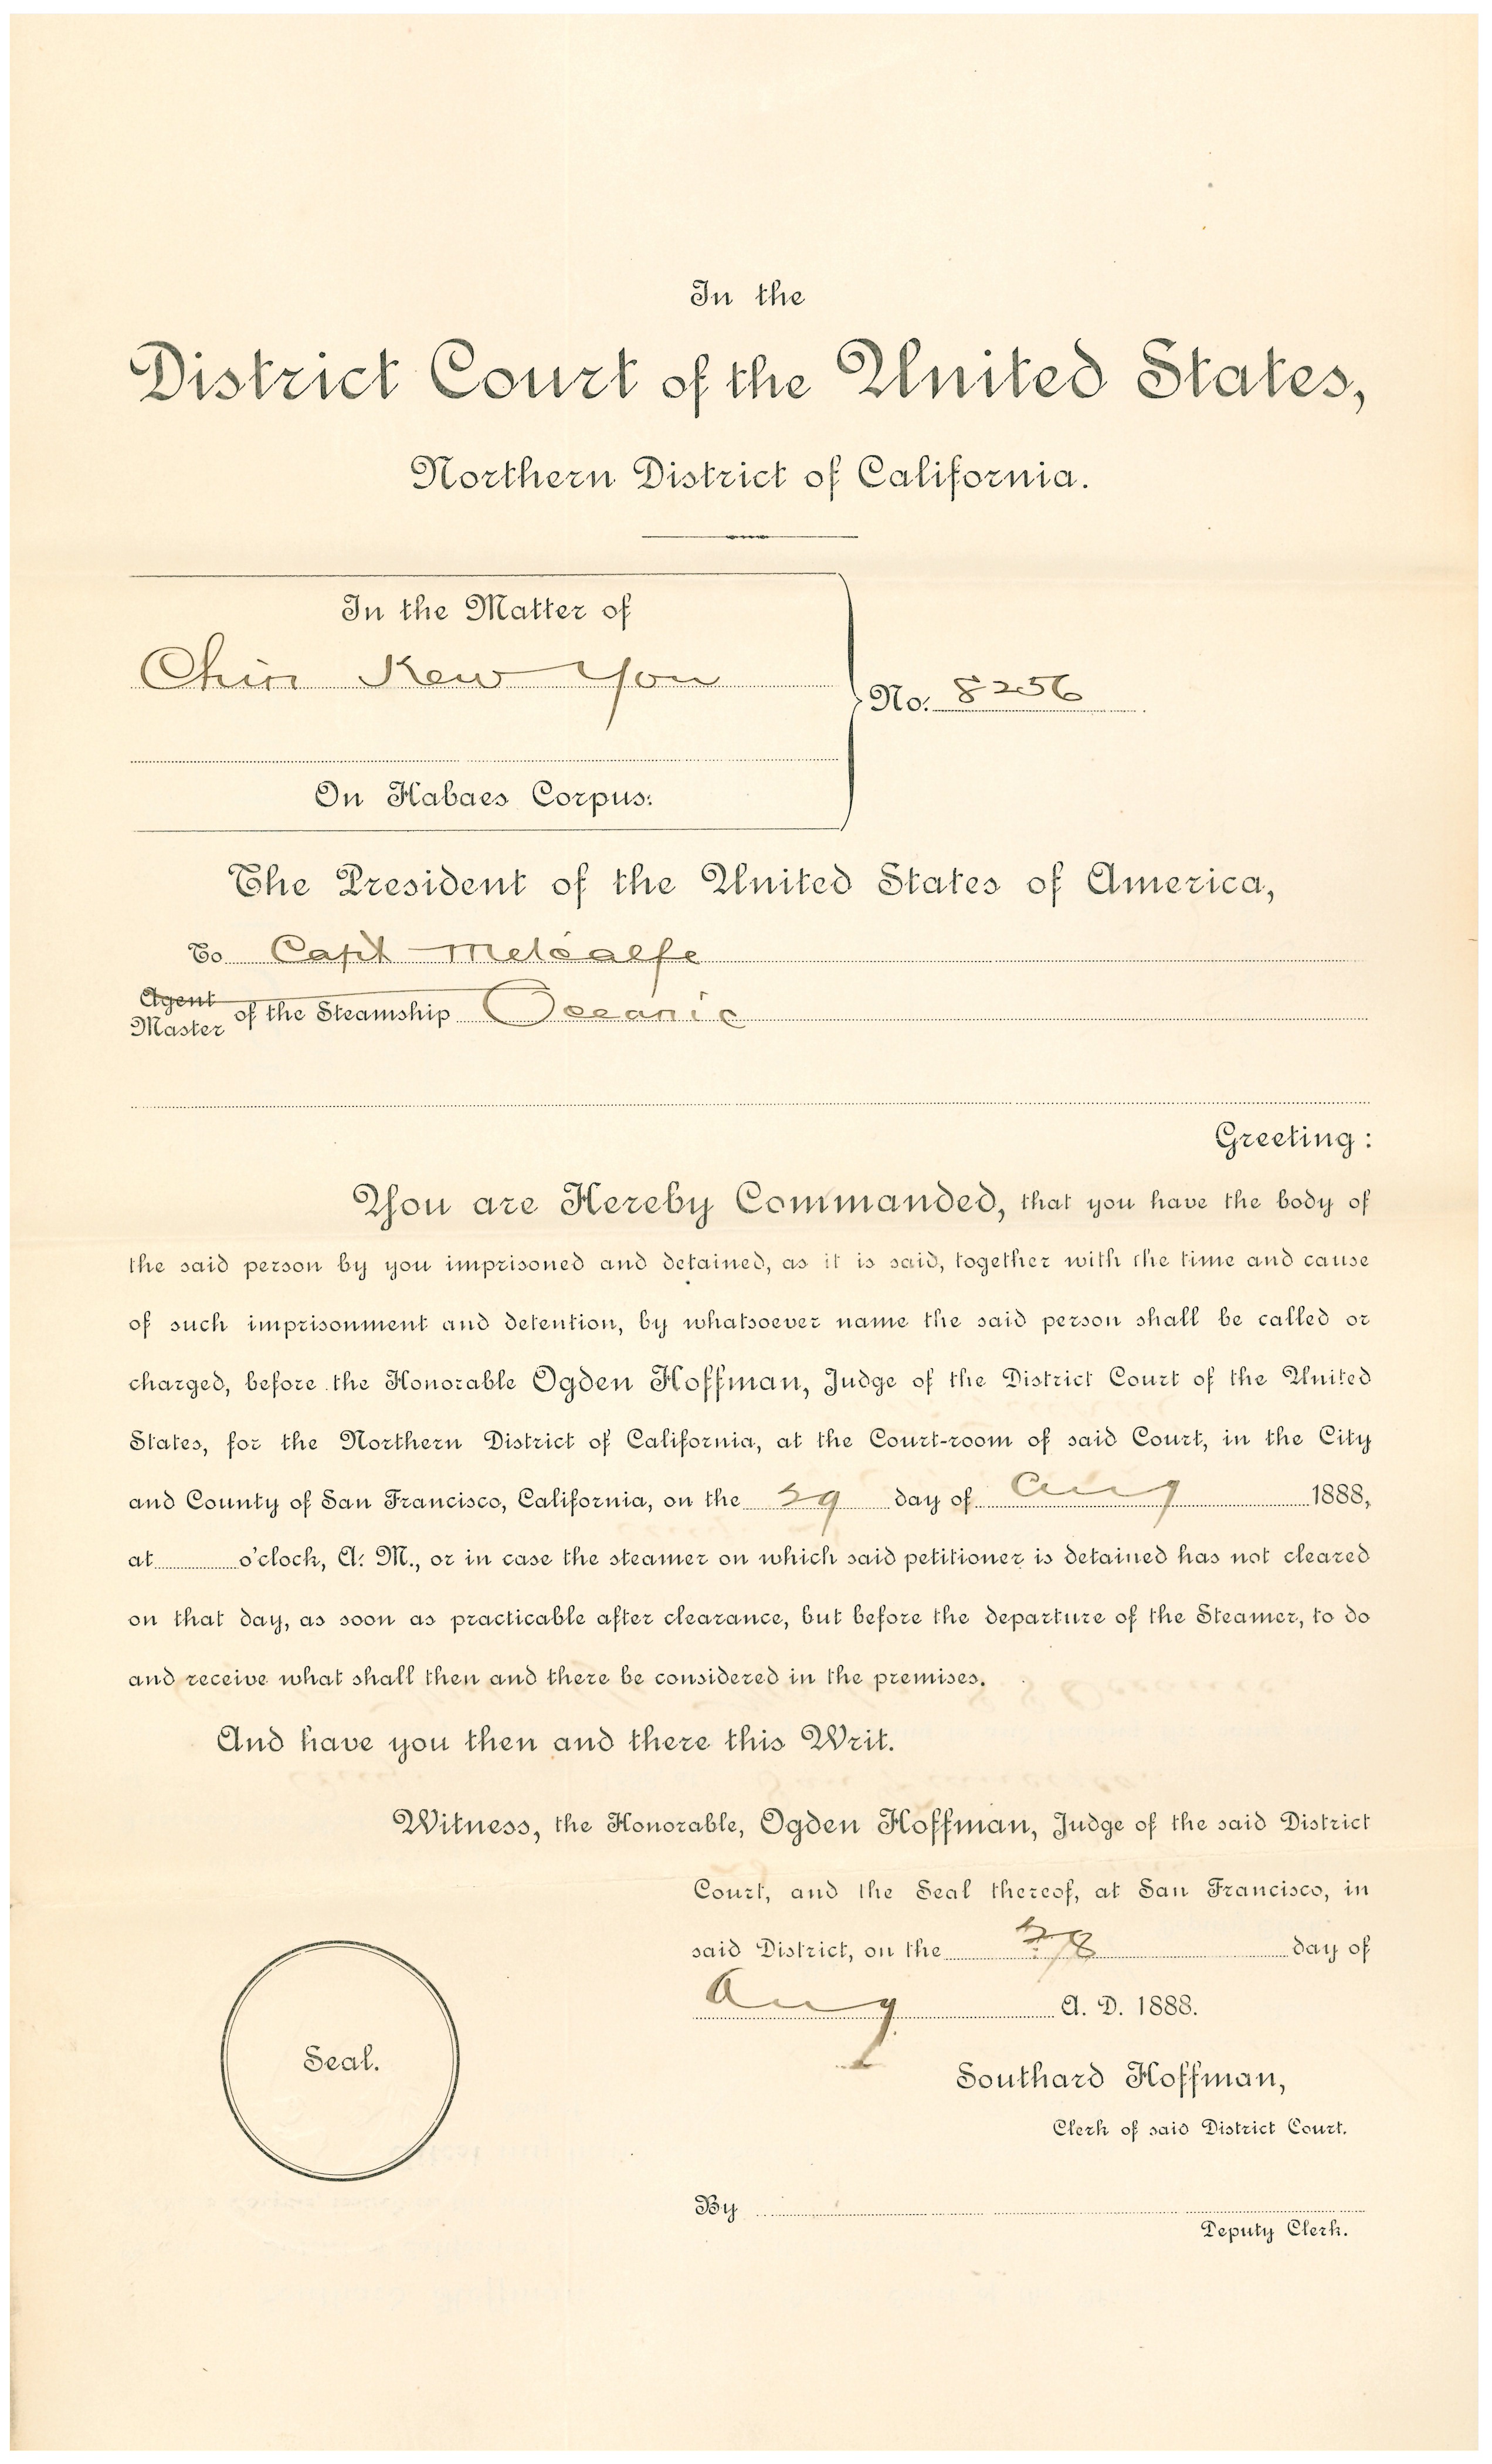 In the
District Court of the United States,
Northern District of California.
In the Matter of
Chin Kew You
No. 8256
On Habaes Corpus.
The President of the United States of America,
To Capt Metcalfe
Agent
Master of the Steamship Oceanic
Greeting:
You are Hereby Commanded, that you have the body of
the said person by you imprisoned and detained, as it is said, together with the time and cause
of such imprisonment and detention, by whatsoever name the said person shall be called or
charged, before the Honorable Ogden Hoffman, Judge of the District Court of the United
States, for the Northern District of California, at the Court-room of said Court, in the City
and County of San Francisco, California, on the 29 day of Aug 1888,
at o'clock, A. M., or in case the steamer on which said petitioner is detained has not cleared
on that day, as soon as practicable after clearance, but before the departure of the Steamer, to do
and receive what shall then and there be considered in the premises.
And have you then and there this Writ.
Witness, the Honorable, Ogden Hoffman, Judge of the said District
Court, and the Seal thereof, at San Francisco, in
said District, on the 28 day of
Aug A. D. 1888.
Seal.
Southard Hoffman,
Clerk of said District Court.
By
Deputy Clerk.